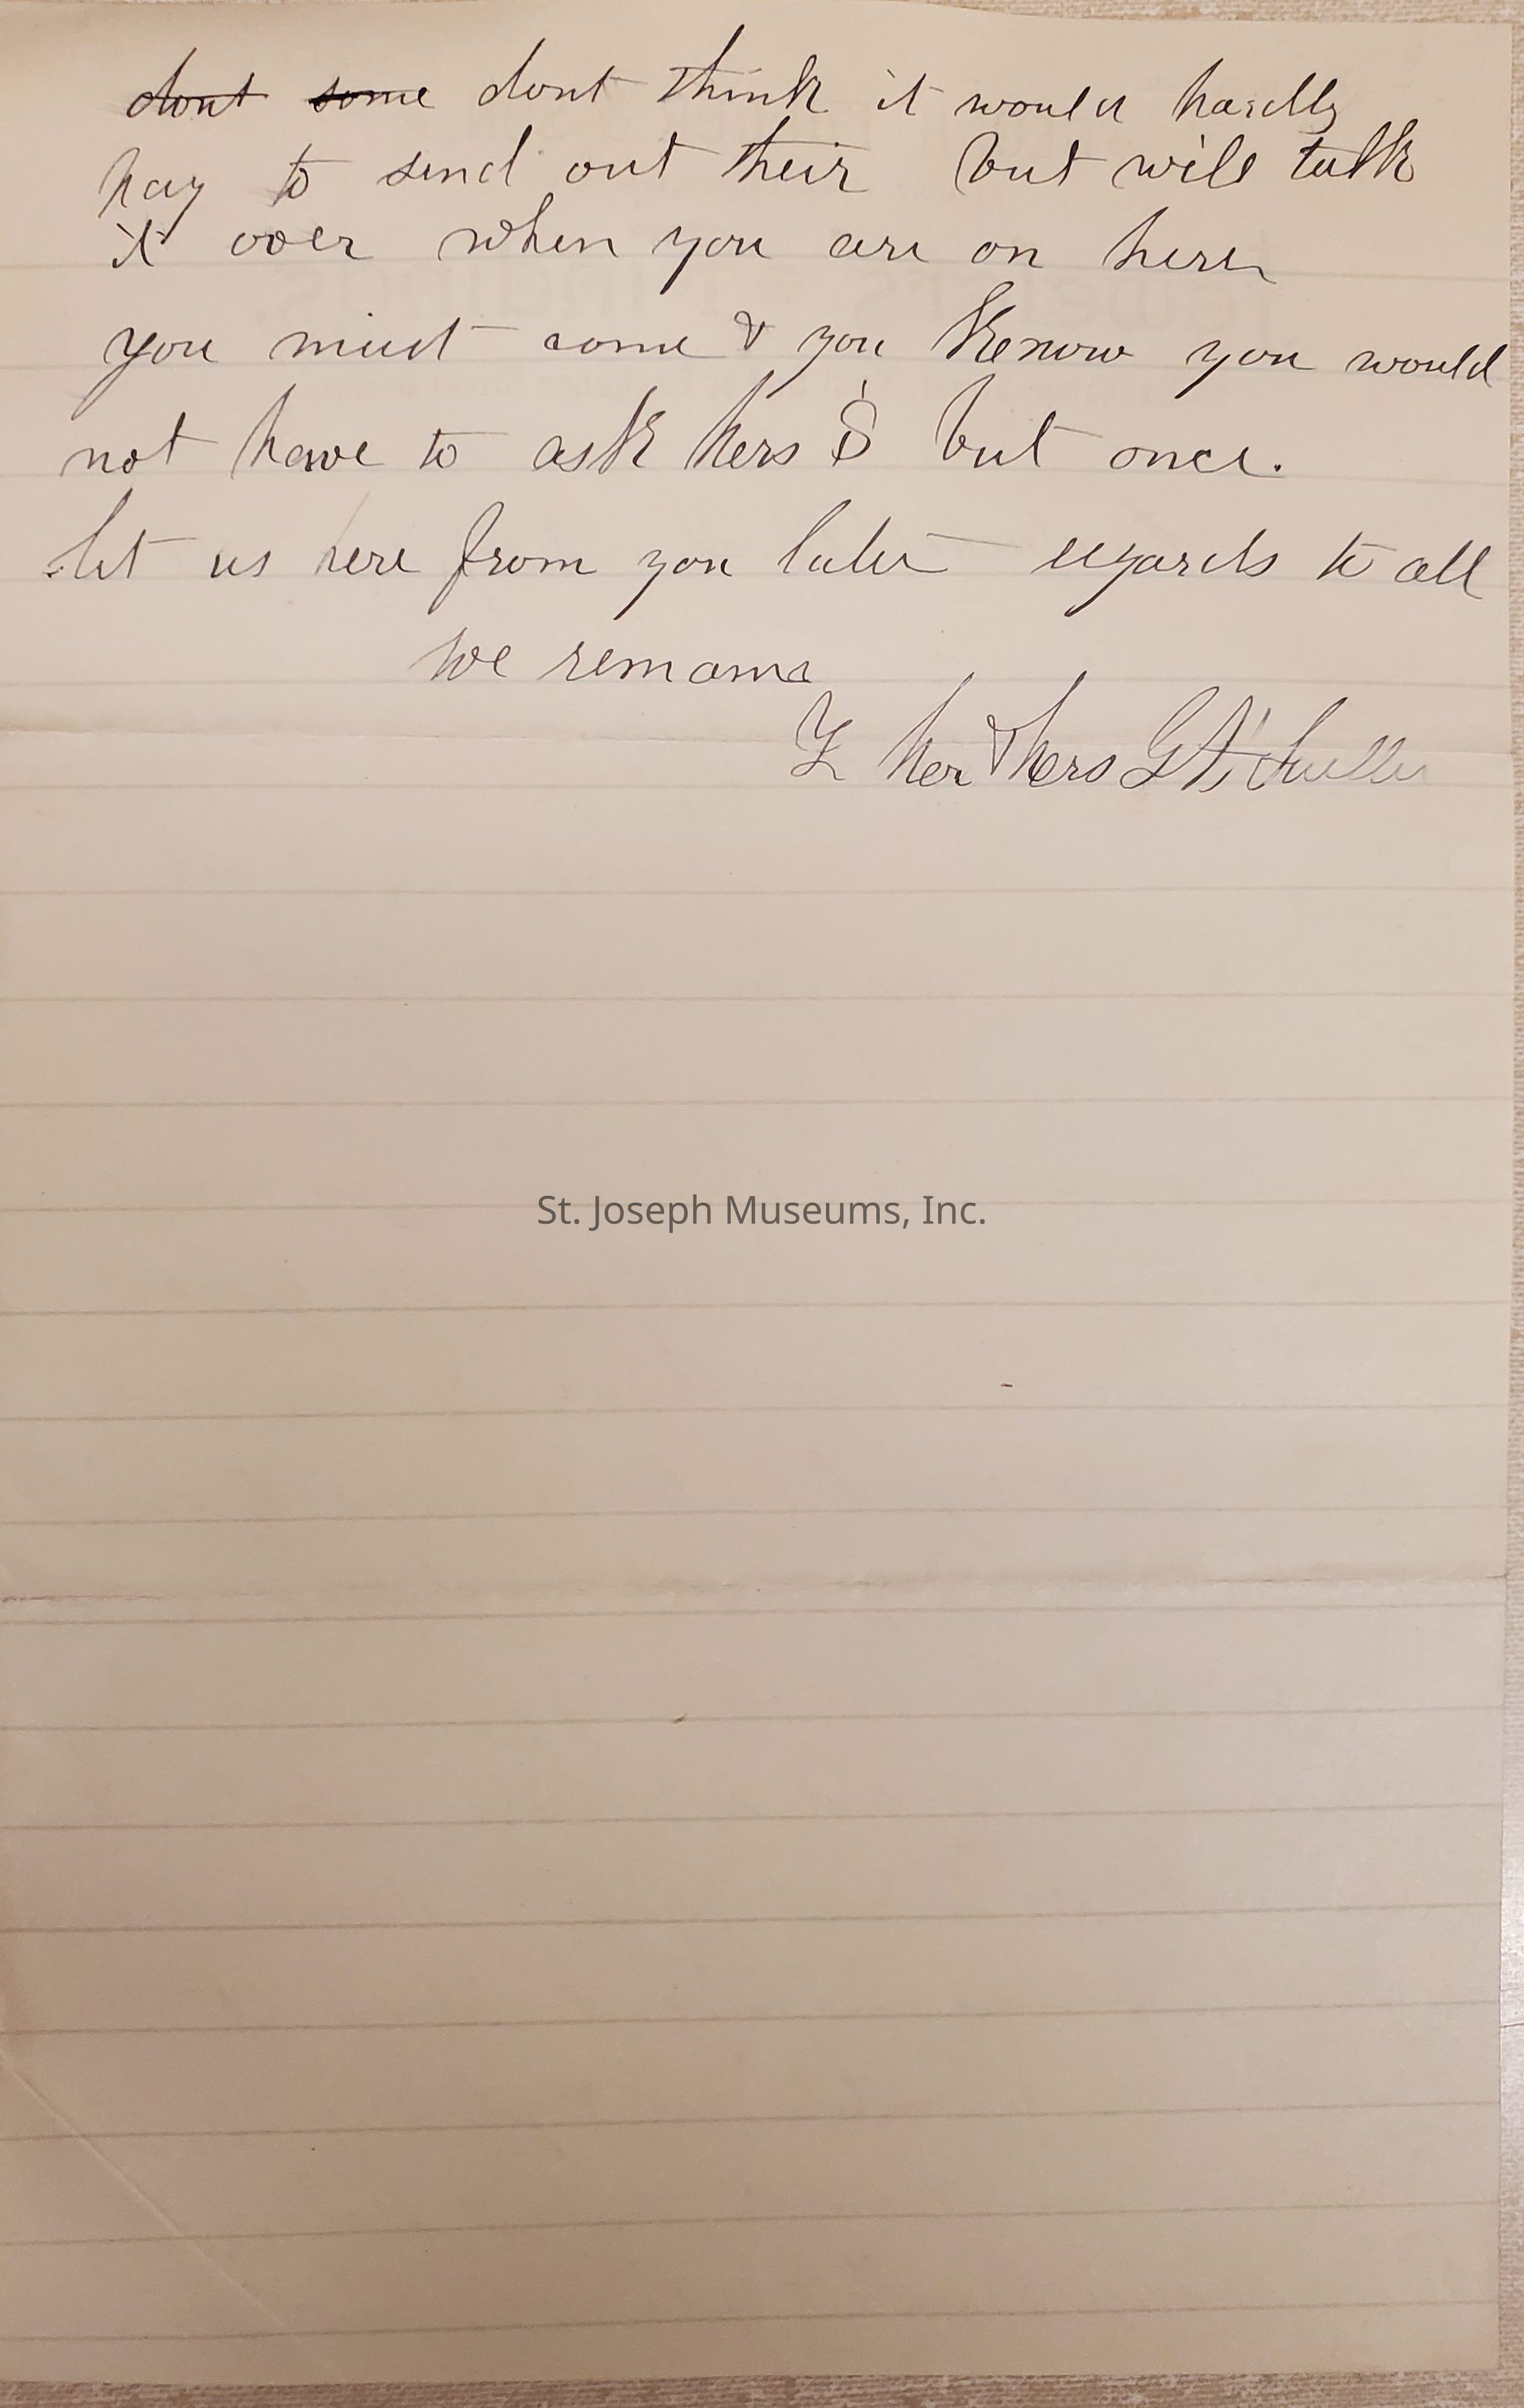 dont some dont think it would hardly
pay to send out their but will talk
it over when you are on here
you must come & you Kenow you would
not have to ask hers & but once.
let us here from you later regards to all
We remain
St. Joseph Museums, Inc.